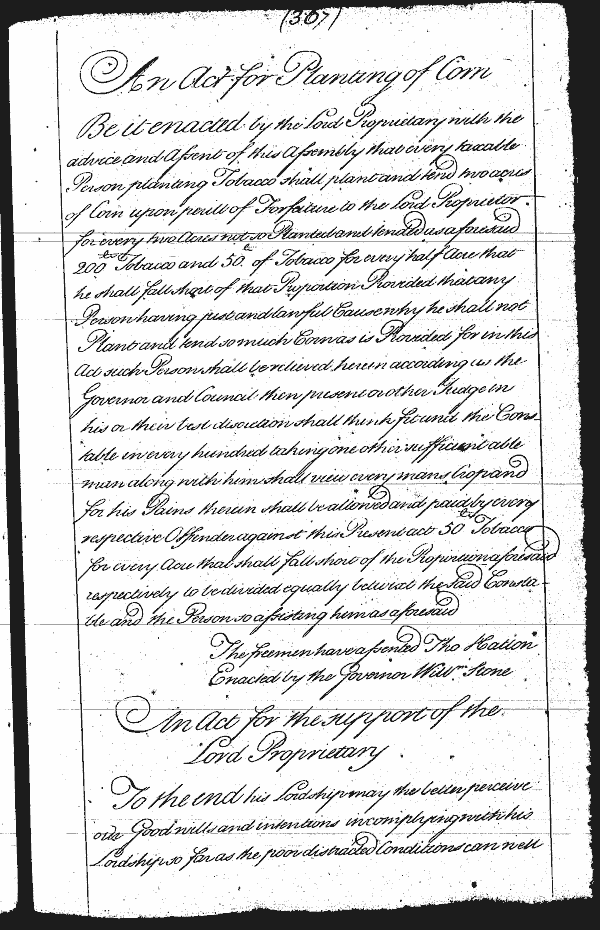 (367)
An Act for Planting of Corn
Be it enacted by the Lord Proprietary with the
advice and Assent of this Assembly that every taxable
Person planting Tobacco shall plant and tend two acres
of Corn upon perill of Forfeiture to the Lord Proprietor
for every two Acres not so Planted and tended as aforesaid
200 lbs Tobacco and 50 lb. of Tobacco for every half Acre that
he shall fall short of that Proportion Provided that any
Person having just and lawful Cause why he shall not
Plant and tend so much Corn as is Provided for in this
Act such Person shall be relieved herein according as the
Governor and Council then present or other Judge in
his or their best discretion shall think fit and the Cons-
table in every hundred taking one other sufficient able
man along with him shall view every mans Crop and
for his Pains therein shall be allowed and paid by every
respective Offender against this Present act 50 lbs Tobacco
for every Acre that shall fall short of the Proportion aforesaid
respectively to be divided equally betwixt the said Consta-
ble and the Person so assisting him as aforesaid
The freemen have assented Tho Hatton
Enacted by the Governor Willm Stone
An Act for the support of the
Lord Proprietary
To the end his Lordship may the better perceive
our Good wills and intentions in complying with his
Lordship so far as the poor distracted Conditions can well